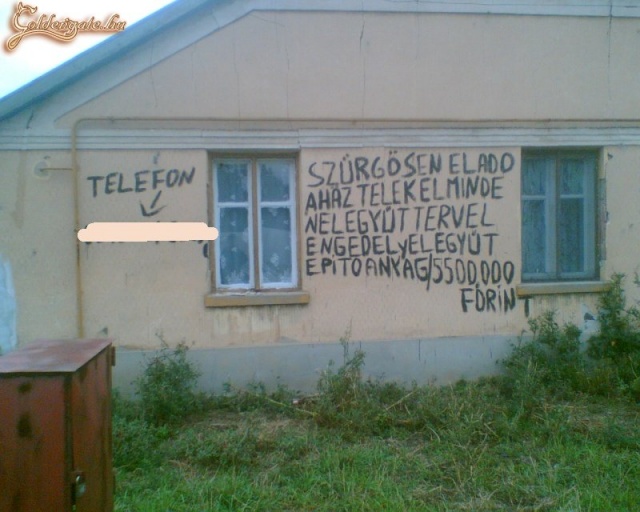 Goldengate.hu
TELEFON
SZŰRGŐSEN ELADO
AHÁZ TELEKELMINDE
NELEGYÜTTERVEL
ENGEDELYELEGYÜT
EPÍTOANYAG/5500000
FÓRINT